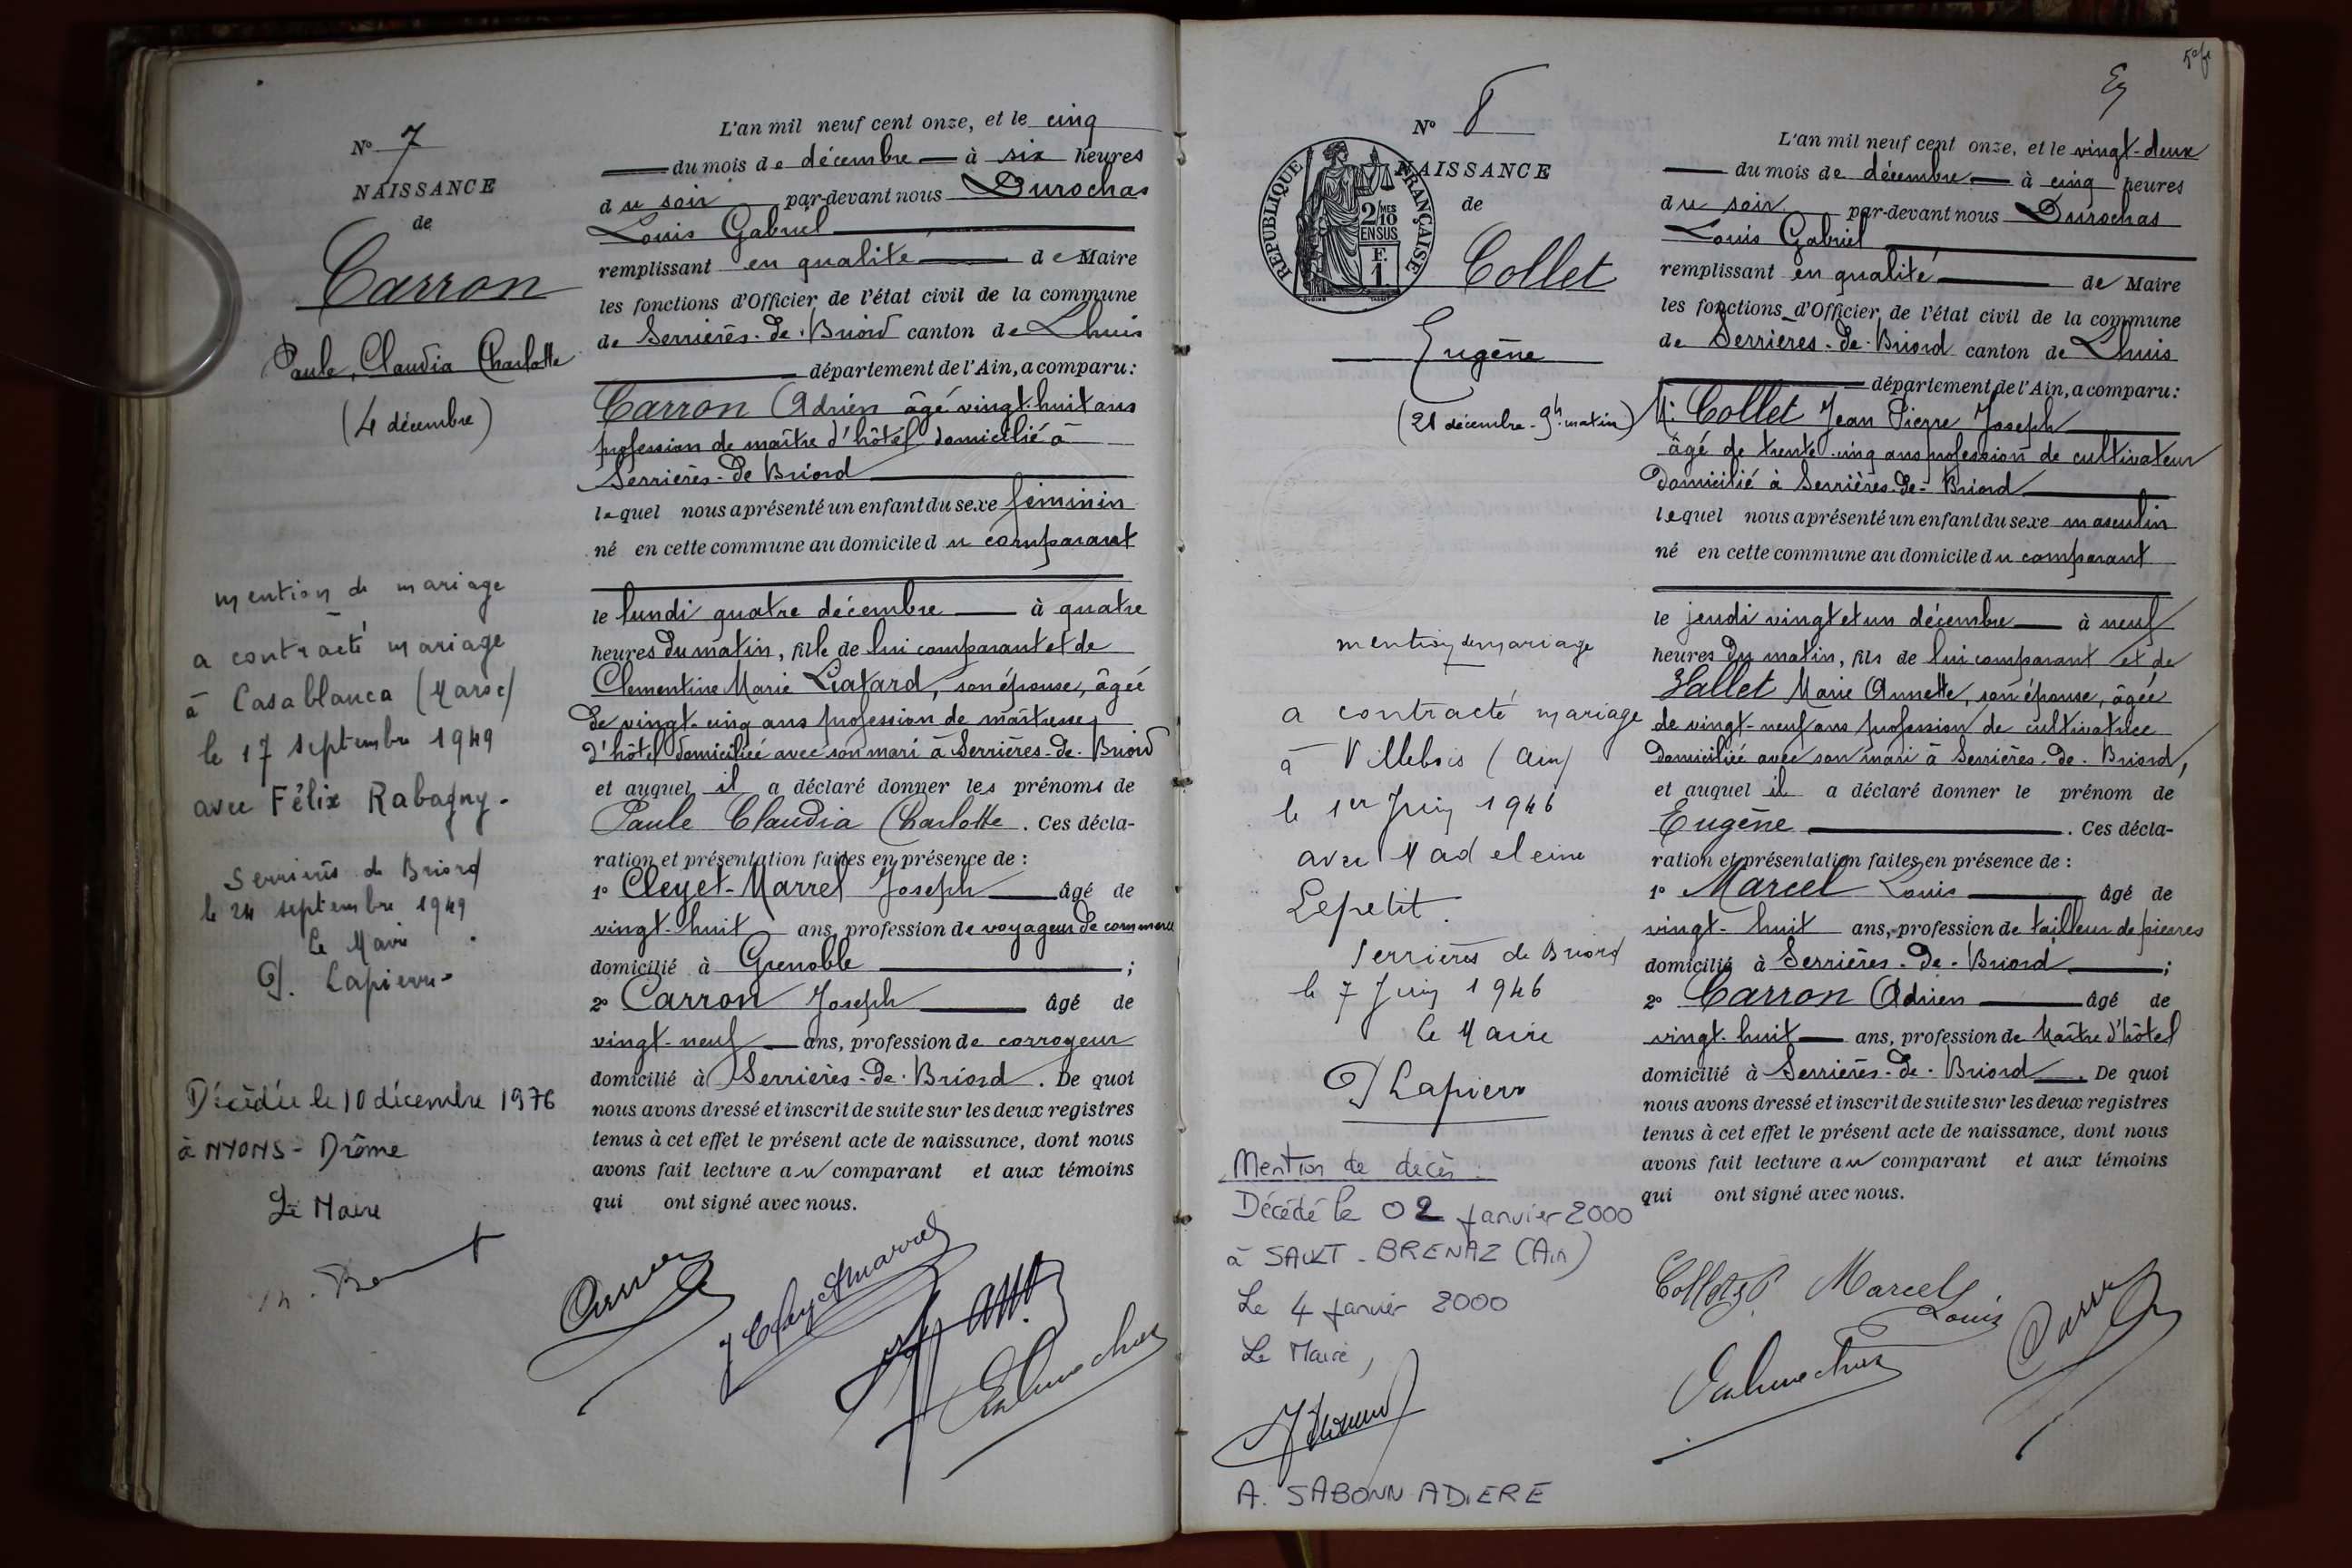 N° 7
NAISSANCE
de
Carron
Paule, Claudia Charlotte
(4 décembre)
mention de mariage
a contracté mariage
à Casablanca (Maroc)
le 17 septembre 1949
avec Félix Rabagny.
Serrières de Briord
le 24 septembre 1949
le Maire
J. Lapierre
Décédée le 10 décembre 1976
à NYONS - Drôme
Le Maire
L'an mil neuf cent onze, et le cinq
du mois de décembre à six heures
du soir par-devant nous Durochas
Louis Gabriel
remplissant en qualité de Maire
les fonctions d'Officier de l'état civil de la commune
de Serrières-de-Briord canton de Lhuis
département de l'Ain, a comparu:
Carron Adrien âgé vingt-huit ans
profession de maître d'hôtel domicilié à
Serrières-de Briord
lequel nous a présenté un enfant du sexe féminin
né en cette commune au domicile du comparant
le lundi quatre décembre à quatre
heures du matin, fille de lui comparant et de
Clementine Marie Liatard, son épouse, âgée
de vingt-cinq ans profession de maîtresse
d'hôtel domiciliée avec son mari à Serrières-de-Briord
et auquel il a déclaré donner les prénoms de
Paule Claudia Charlotte. Ces décla-
ration et présentation faites en présence de :
1° Cleyet-Marrel Joseph âgé de
vingt-huit ans, profession de voyageur de commerce
domicilié à Grenoble ;
2° Carron Joseph âgé de
vingt-neuf ans, profession de corroyeur
domicilié à Serrières-de-Briord. De quoi
nous avons dressé et inscrit de suite sur les deux registres
tenus à cet effet le présent acte de naissance, dont nous
avons fait lecture au comparant et aux témoins
qui ont signé avec nous.
J Cleyet marrel
N° 8
NAISSANCE
de
REPUBLIQUE FRANÇAISE
2/10 MES
EN SUS
F.
1
Collet
Eugène
(21 décembre - 9h matin)
mention de mariage
a contracté mariage
à Villebois (Ain)
le 1er Juin 1946
avec Madeleine
Lepetit.
Serrières de Briord
le 7 Juin 1946
le Maire
J Lapierre
Mention de décès.
Décédé le 02 Janvier 2000
à SAULT-BRENAZ (Ain)
Le 4 Janvier 2000
Le Maire,
A. SABONNADIERE
L'an mil neuf cent onze, et le vingt-deux
du mois de décembre à cinq heures
du soir par-devant nous Durochas
Louis Gabriel
remplissant en qualité de Maire
les fonctions d'Officier de l'état civil de la commune
de Serrières-de-Briord canton de Lhuis
département de l'Ain, a comparu:
M. Collet Jean Pierre Joseph
âgé de trente-cinq ans profession de cultivateur
domicilié à Serrières-de-Briord
lequel nous a présenté un enfant du sexe masculin
né en cette commune au domicile du comparant
le jeudi vingt et un décembre à neuf
heures du matin, fils de lui comparant et de
Hallet Marie Annette, son épouse, âgée
de vingt-neuf ans profession de cultivatrice
domiciliée avec son mari à Serrières-de-Briord,
et auquel il a déclaré donner le prénom de
Eugène. Ces décla-
ration et présentation faites en présence de :
1° Marcel Louis âgé de
vingt-huit ans, profession de tailleur de pierres
domicilié à Serrières-de-Briord ;
2° Carron Adrien âgé de
vingt-huit ans, profession de Maître d'hôtel
domicilié à Serrières-de-Briord. De quoi
nous avons dressé et inscrit de suite sur les deux registres
tenus à cet effet le présent acte de naissance, dont nous
avons fait lecture au comparant et aux témoins
qui ont signé avec nous.
Marcel
Louis